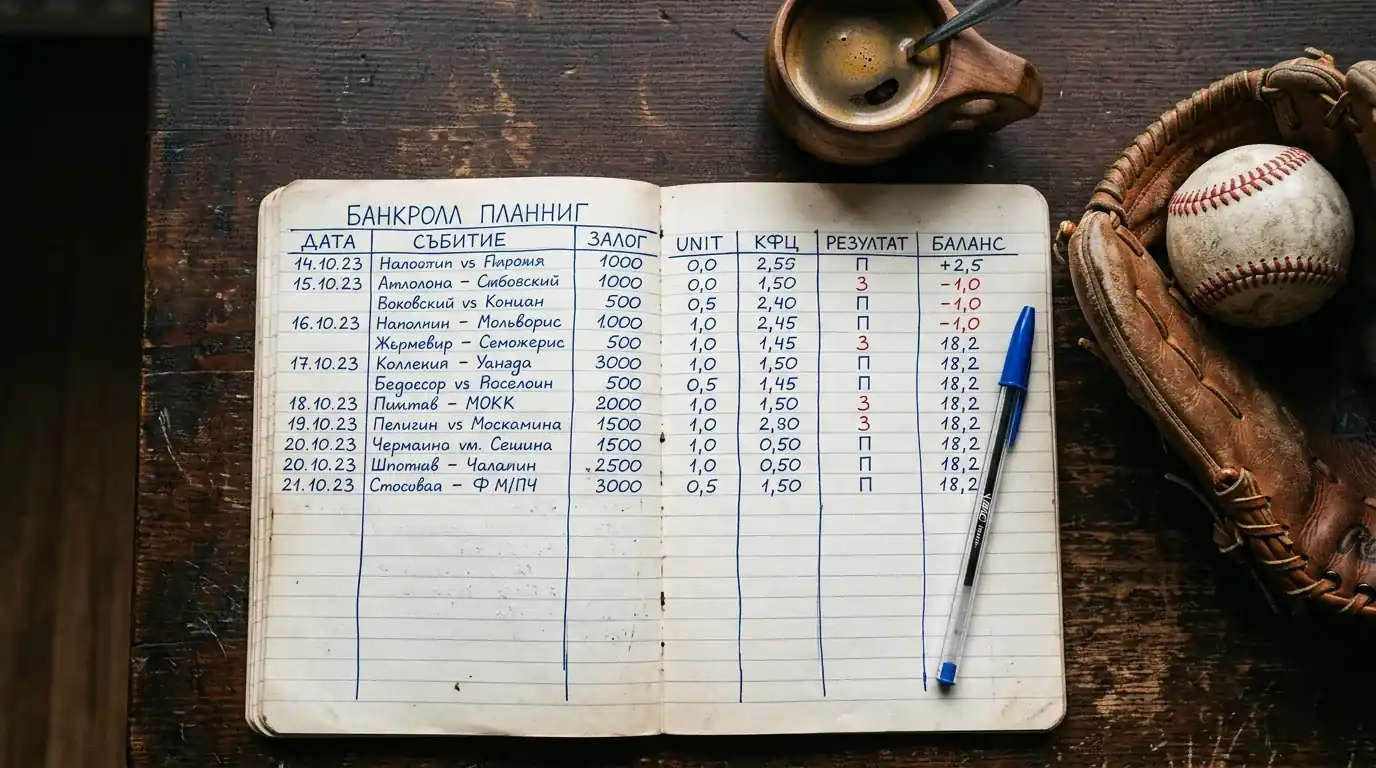 БАНКРОЛЛ ПЛАННИГ
ДАТА СЪБИТИЕ ЗАЛОГ UNIT КФЦ РЕЗУЛТАТ БАЛАНС
14.10.23 vs 1000 0,0 2,55 П +2,5
15.10.23 Атлолона – Стбовский 1000 0,0 1,50 З -1,0
Воковский vs Кониан 500 0,5 2,40 П -1,0
16.10.23 Наполнин – Мольворис 1.000 1,0 2,45 П -1,0
Жермевир – Семожерис 500 1,0 1,45 З 18,2
17.10.23 Коллекия – Уанада 3000 1,0 1,50 П 18,2
Бедоссор vs Роселоин 500 0,5 1,45 П 18,2
18.10.23 – МОКК 2000 1,0 1,50 З 18,2
19.10.23 Пелигин vs Москамина 1500 1,0 2,80 З 18,2
20.10.23 Чермаино vm. Сешина 1500 1,0 0,50 П 18,2
20.10.23 Шпотав – Чалапин 2500 1,0 0,50 П 18,2
21.10.23 Стосовая – Ф М/ПЧ 3000 0,5 1,50 П 18,2